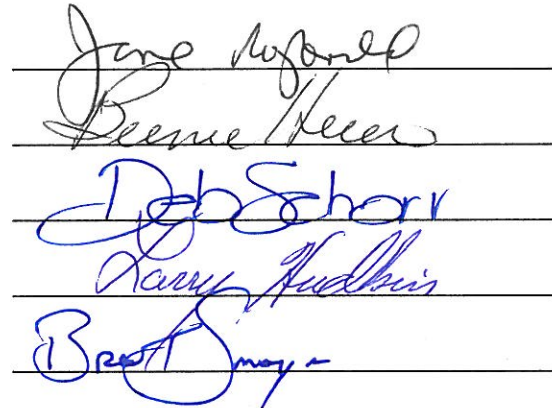 Jane
Bernie Heier
Deb Schorr
Larry Hudkins
Brent Smoyer